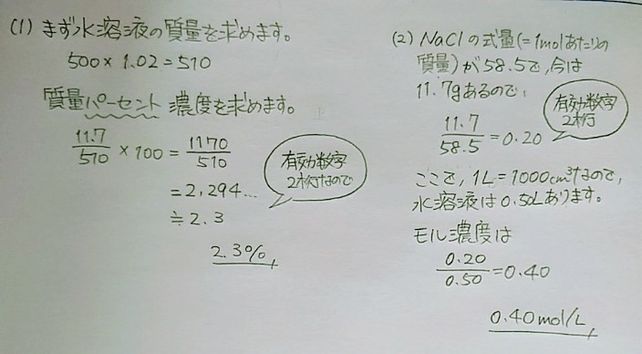 (1) まず水溶液の質量を求めます。
500×1.02=510
質量パーセント濃度を求めます。
11.7/510 ×100 = 1170/510
=2.294…
≒2.3
有効数字
2桁なので
2.3%
(2) NaClの式量(=1molあたりの
質量)が58.5で,今は
11.7gあるので,
11.7/58.5=0.20
有効数字
2桁
ここで,1L=1000cm³なので,
水溶液は0.50Lあります。
モル濃度は
0.20/0.50=0.40
0.40mol/L